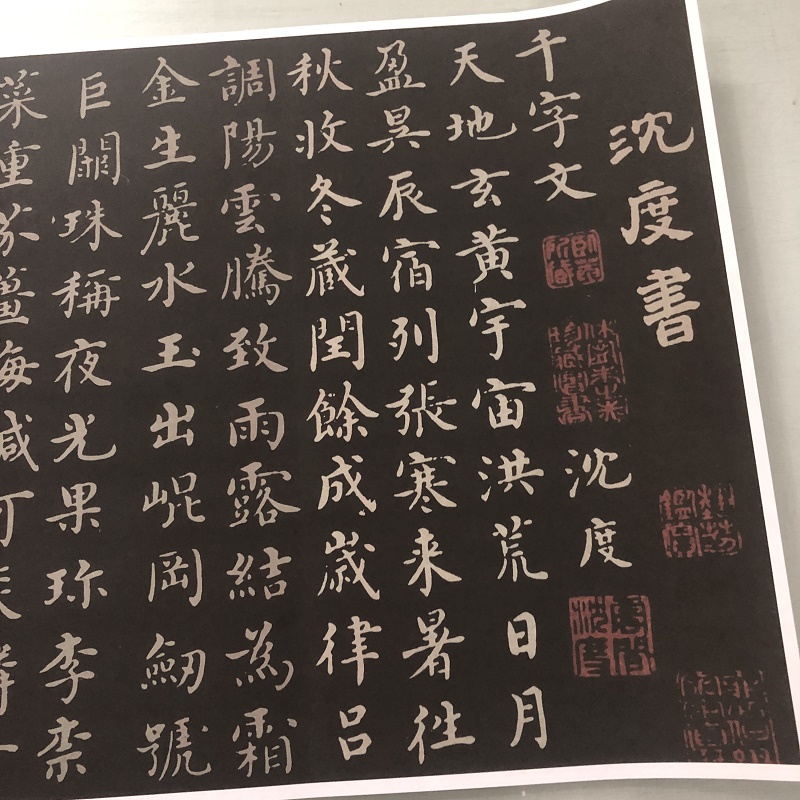 沈度書
千字文
沈度
天地玄黄宇宙洪荒日月
盈昃辰宿列張寒来暑徃
秋收冬蔵閏餘成歳律吕
調陽雲騰致雨露結為霜
金生麗水玉出崐岡劒號
巨闕珠稱夜光果珎李柰
菜重芥薑海鹹